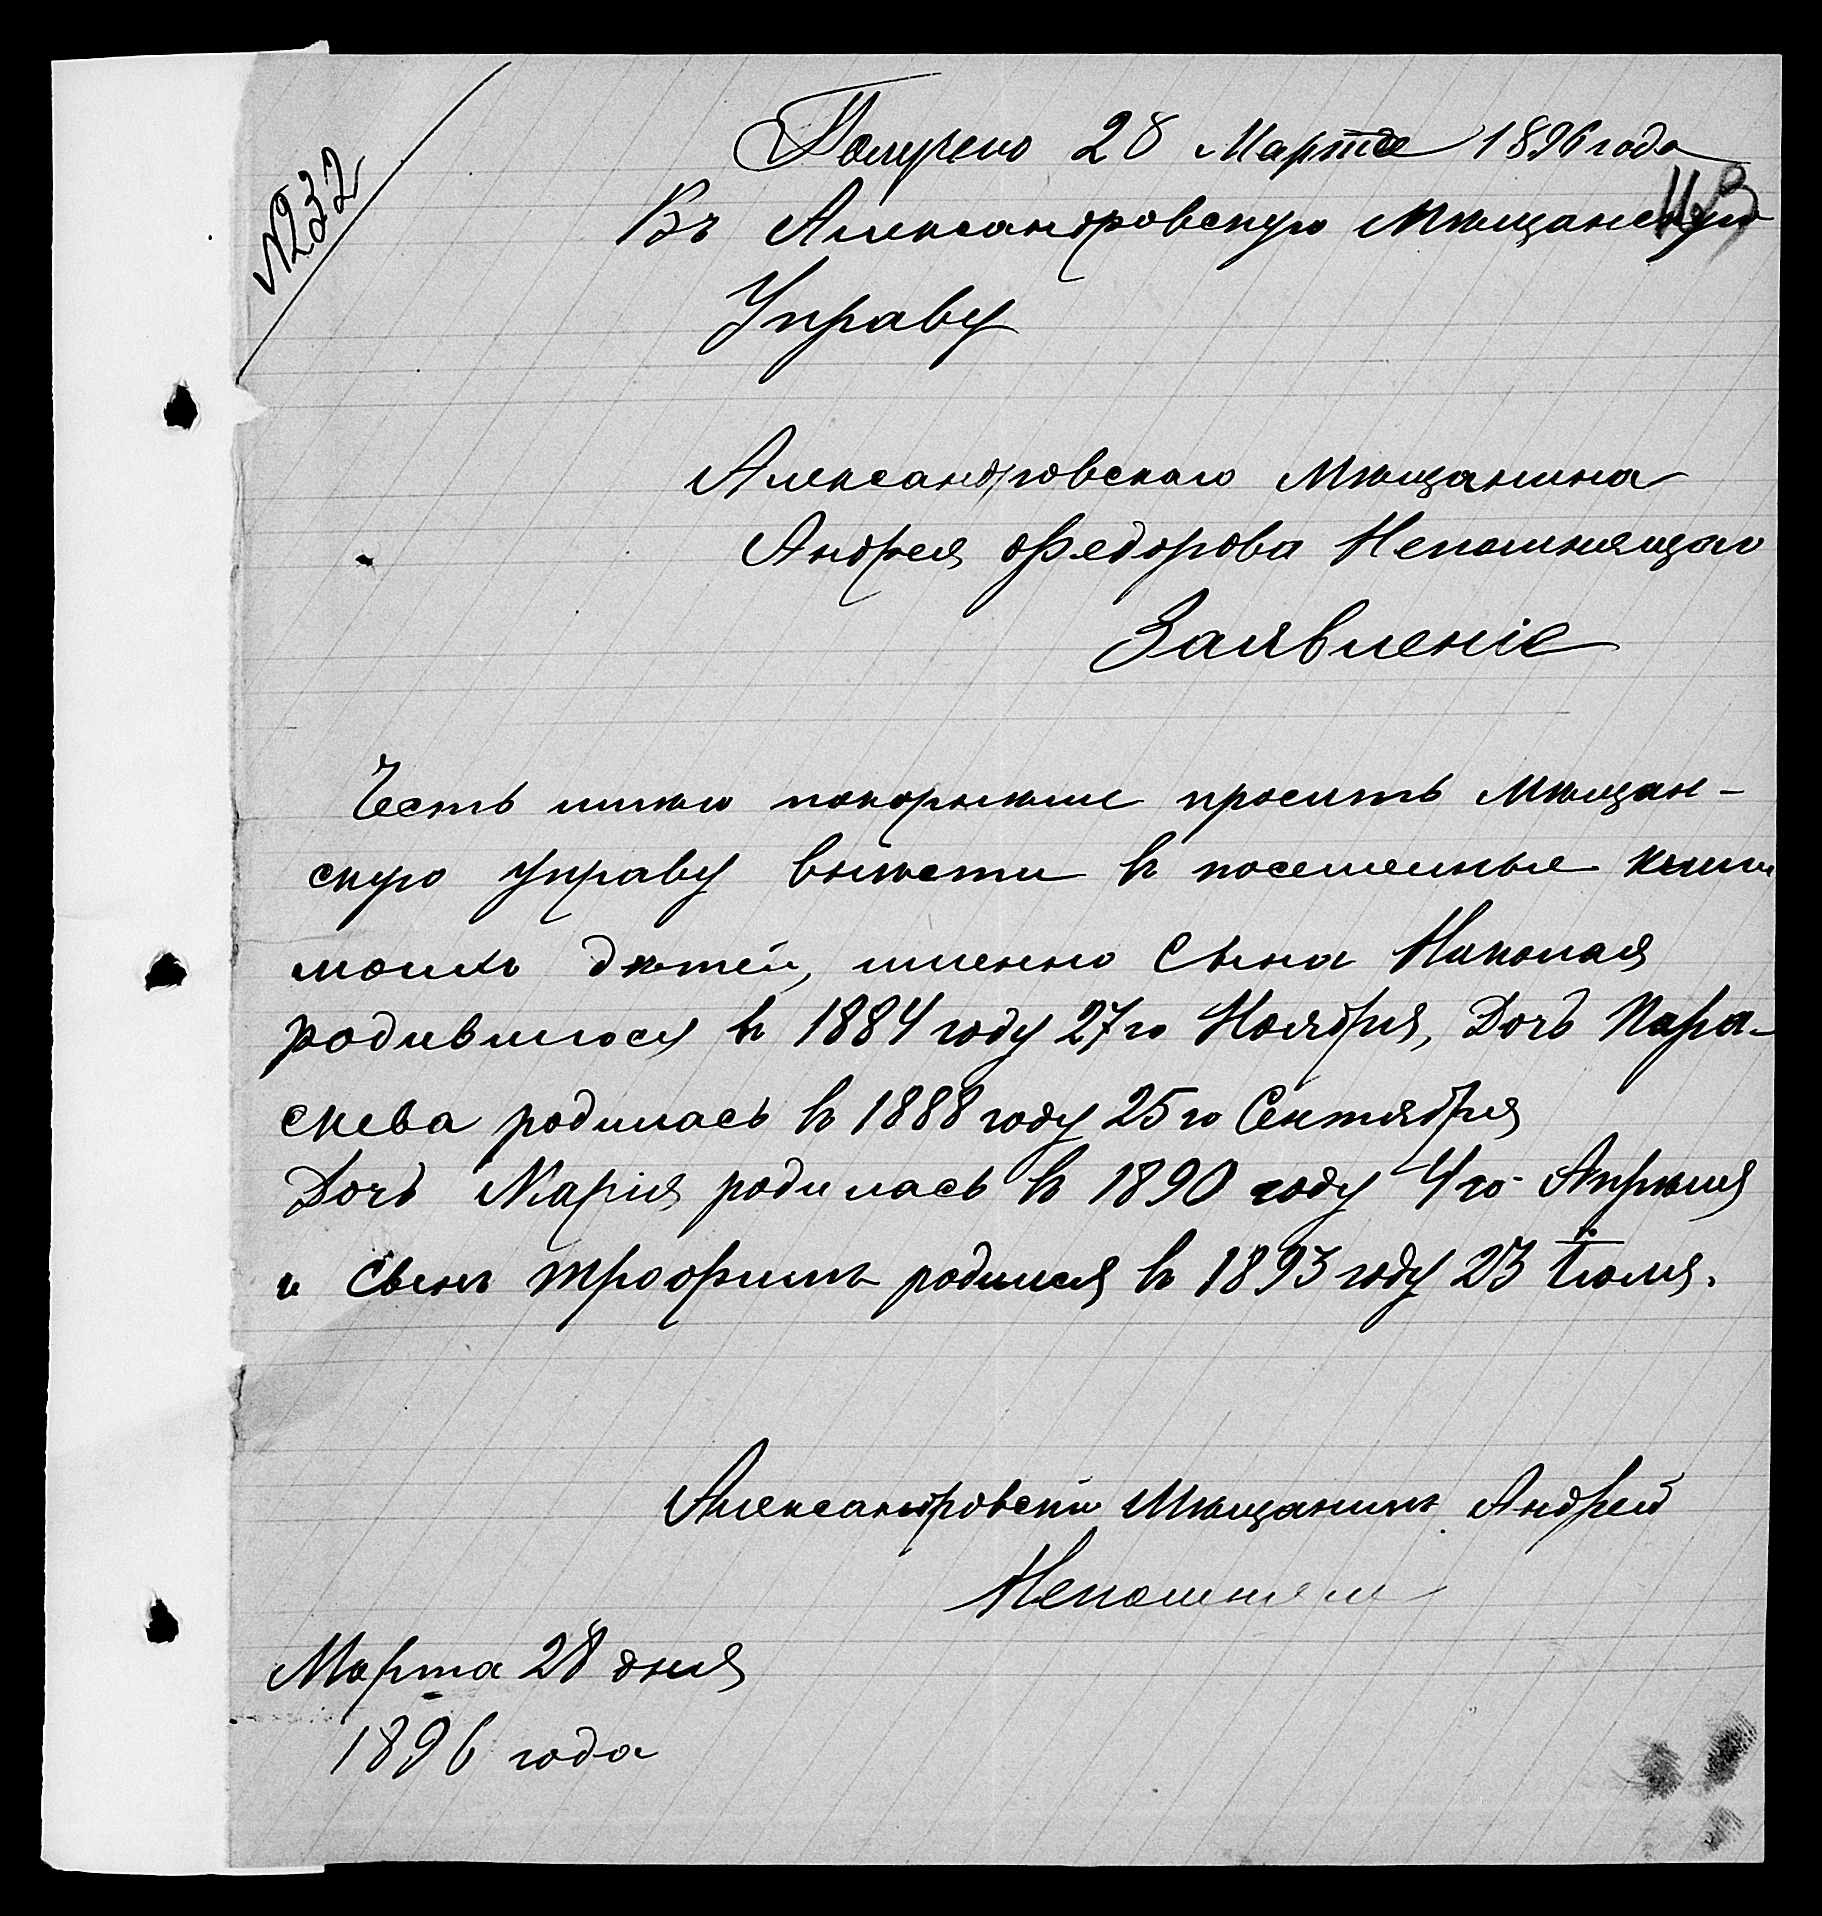 №232
Получено 28 Марта 1896 года
113
Въ Александровскую Мѣщанскую
Управу
Александровскаго Мѣщанина
Андрея Федорова Непомнящаго
Заявленіе
Честь имѣю покорнѣйше просить Мѣщан-
скую управу внѣсти въ посемейные книги
моихъ дѣтей, именно Сына Николая
родившгося въ 1884 году 27го Ноября, Дочь Пара-
скева родилась въ 1888 году 25го Сентября
Дочь Марія родилась въ 1890 году 4го Апрѣля
и Сынъ Трофимъ родился въ 1893 году 23 Іюля.
Александровскій Мѣщанинъ Андрей
Марта 28 дня
1896 года